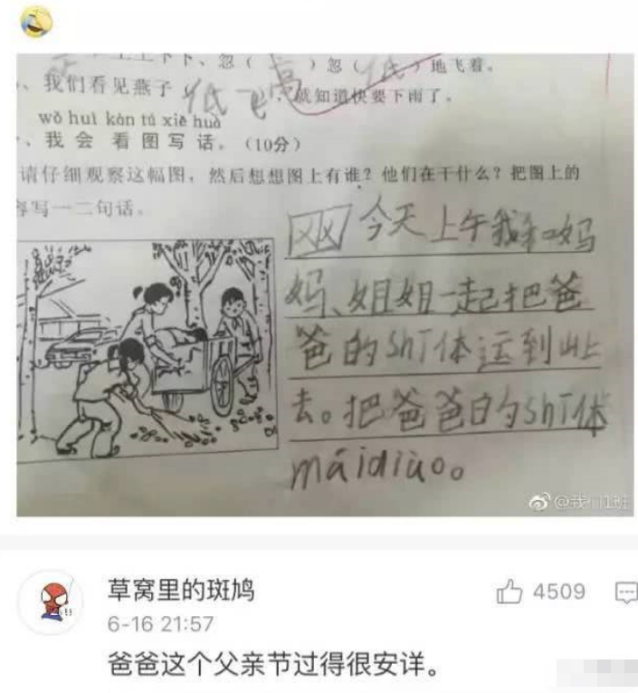 上上下下、忽( )忽(低)地飞着。
、我们看见燕子低飞，就知道快要下雨了。
wǒ huì kàn tú xiě huà
、我 会 看 图 写 话。(10分)
请仔细观察这幅图，然后想想图上有谁？他们在干什么？把图上的
容写一二句话。
今天上午我和妈
妈、姐姐一起把爸
爸的shī体运到山上
去。把爸爸的shī体
máidiào。
@我们1班
草窝里的斑鸠
4509
6-16 21:57
爸爸这个父亲节过得很安详。